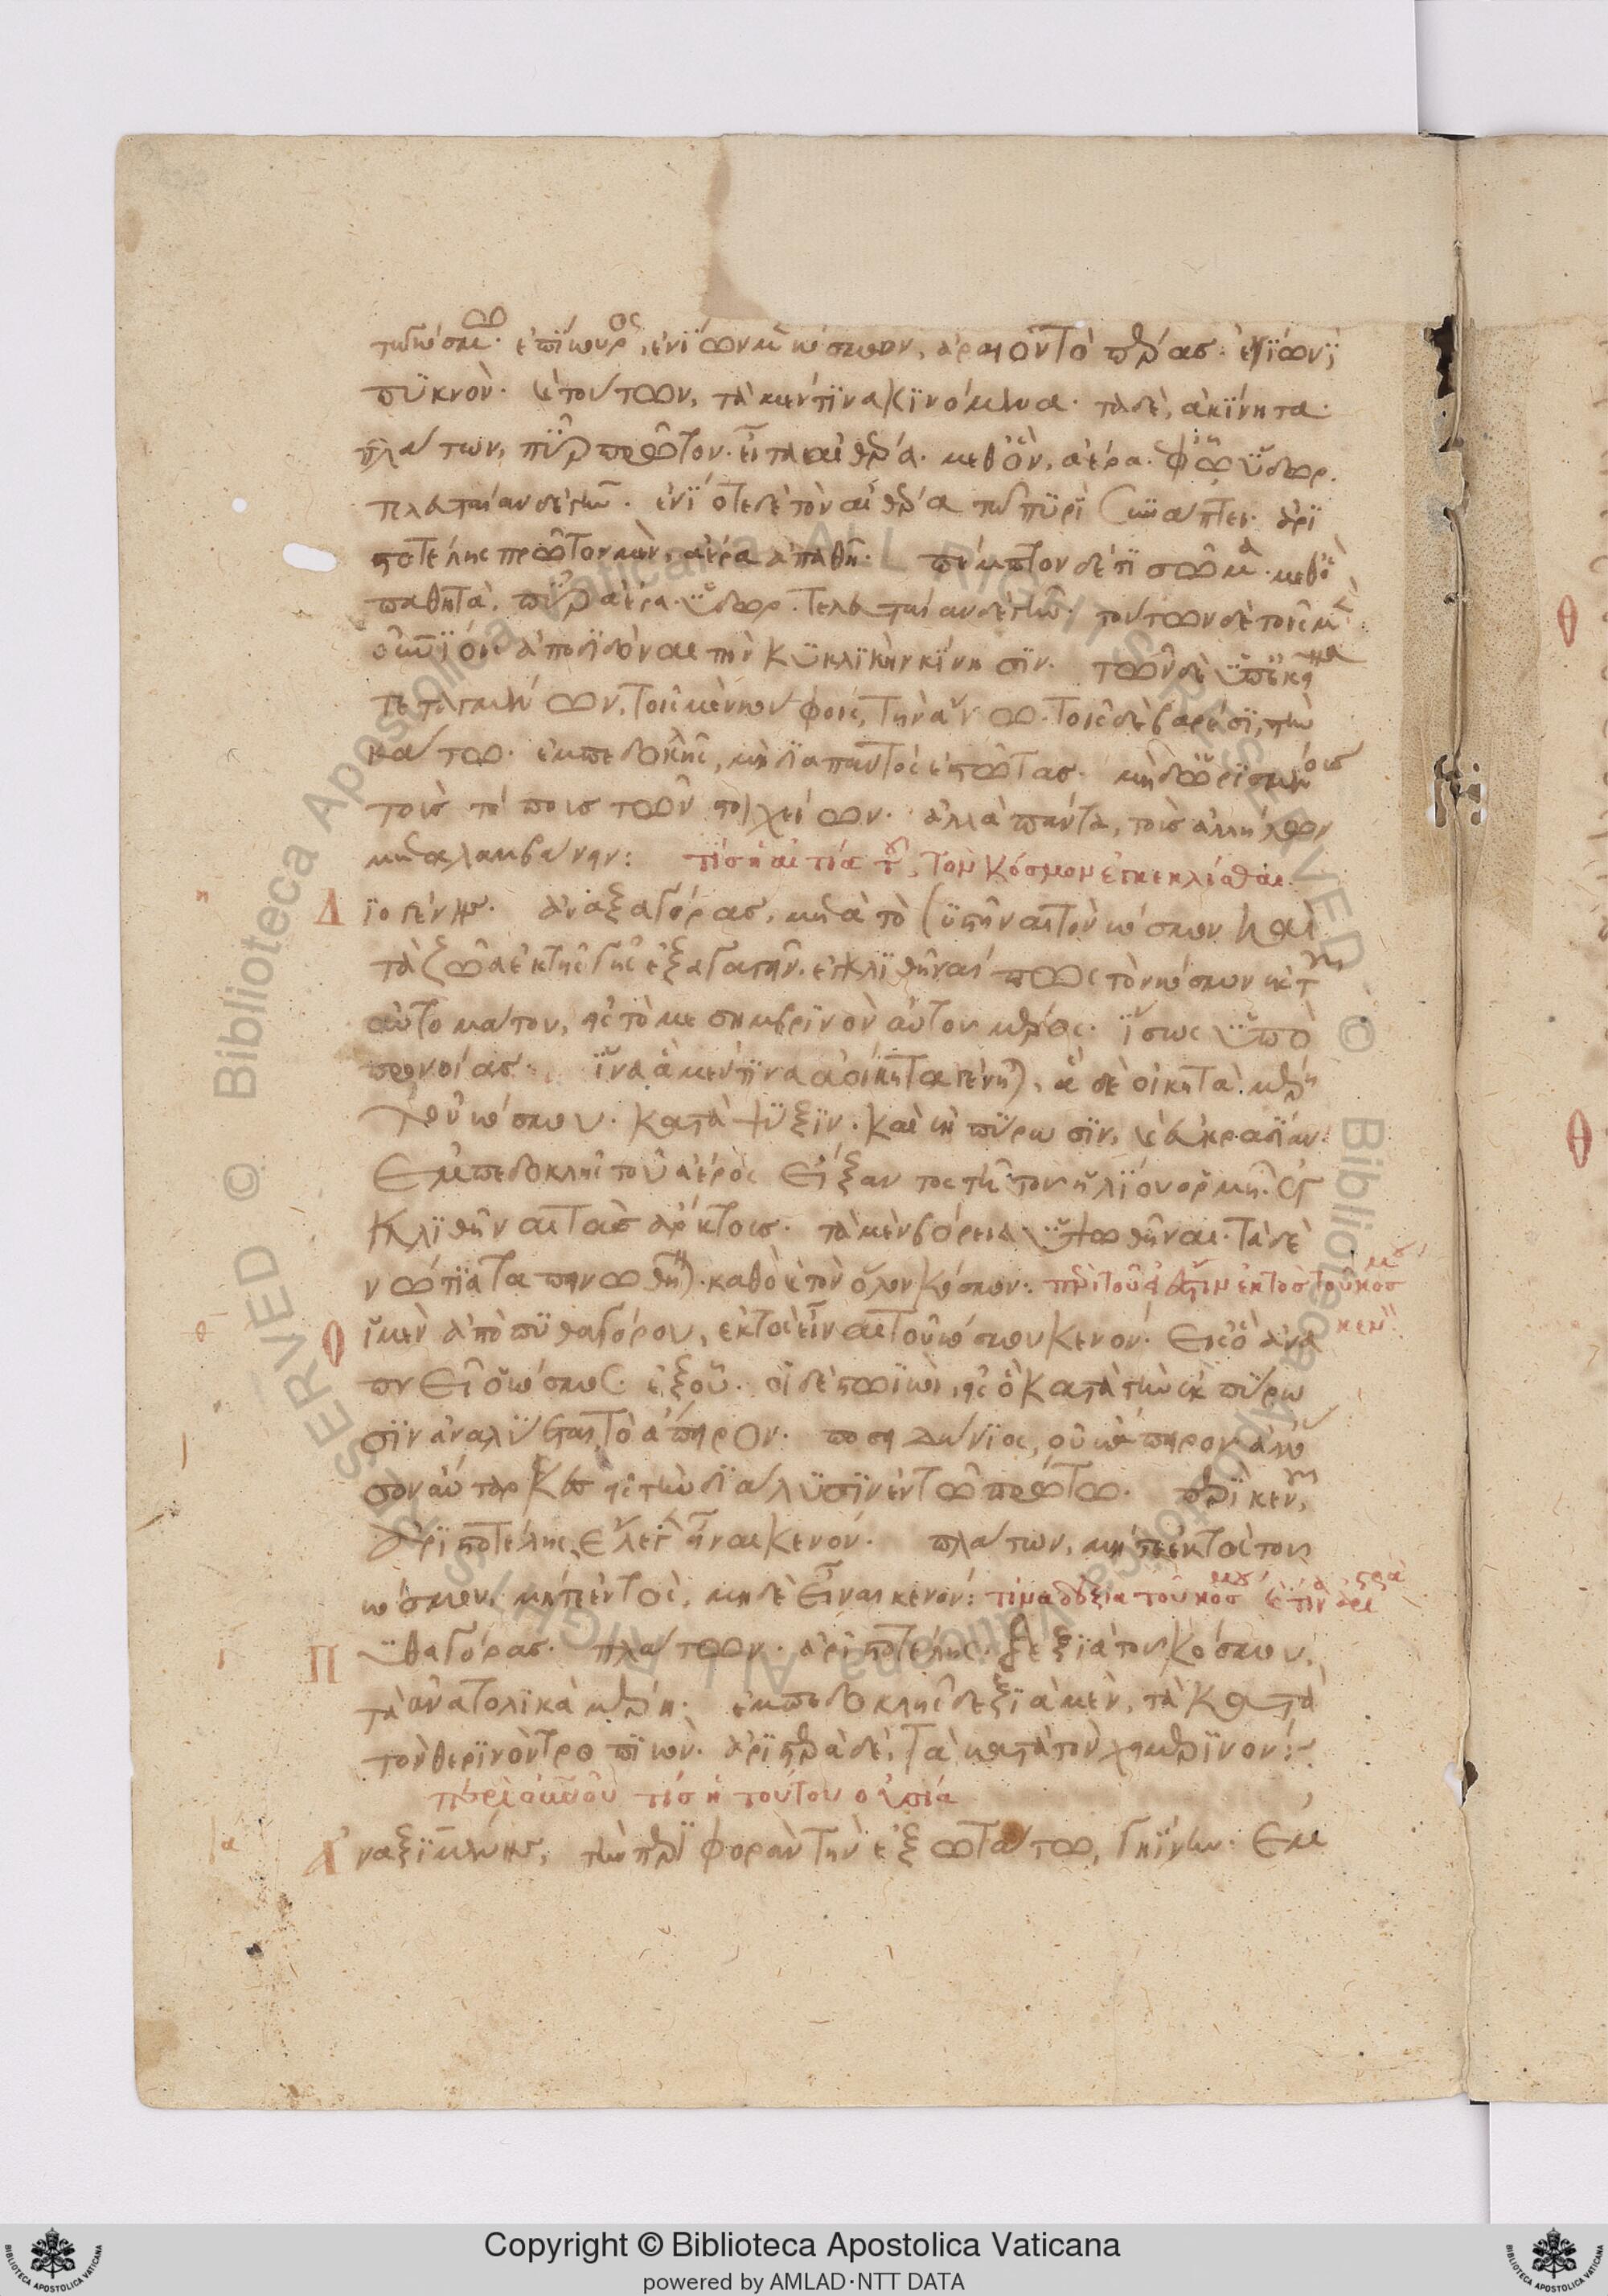 τῶ κόσμω. ἐπίκουρος, ἐνίων μὲν κόσμων, ἀραιὸν τὸ πέρας. ἐνίων δὲ
πυκνὸν. καὶ τούτων, τὰ μέν τινα κινούμενα. τὰ δὲ, ἀκίνητα.
πλάτων, πῦρ πρῶτον. εἶτα αἰθέρα. μεθ' ὃν, ἀέρα. ἐφ' ᾧ ὕδωρ.
τελευταίαν δὲ γῆν. ἐνίοτε δὲ τὸν αἰθέρα τῶ πυρὶ συνάπτει. ἀρι
στοτέλης πρῶτον μὲν, αἰθέρα ἀπαθῆ. πέμπτον δέ τι σῶμα. μεθ' ὃ
παθητὰ, πῦρ ἀέρα. ὕδωρ. τελευταίαν δὲ γῆν. τούτων δὲ τοῖς μὲν
οὐρανίοις ἀποδίδοναι τὴν κυκλικὴν κίνησιν. τῶν δὲ ὑποκά
τεταγμένων, τοῖς μὲν κούφοις, τὴν ἄνω. τοῖς δὲ βαρέσι, τὴν
κάτω. ἐμπεδοκλῆς, μὴ διαπαντὸς ἑστῶτας. μὴδ' ὡρισμένους
τοὺς τόπους τῶν στοιχείων. ἀλλὰ πάντα, τοὺς ἀλλήλων
μεταλαμβάνειν: τίς ἡ αἰτία τοῦ τὸν κόσμον ἐγκεκλίσθαι.
Διογένης. ἀναξαγόρας, μετὰ τὸ συστῆναι τὸν κόσμον καὶ
τὰ ζῶα ἐκ τῆς γῆς ἐξαγαγεῖν. ἐγκλιθῆναί πως τὸν κόσμον ἐκ τοῦ
αὐτομάτου, εἰς τὸ μεσημβρινὸν αὐτοῦ μέρος. ἴσως ὑπὸ
προνοίας. ἵνα ἃ μέν τινα ἀοίκητα γένηται, ἃ δὲ οἰκητὰ μέρη
τοῦ κόσμου. κατὰ ψύξιν. καὶ ἐκπύρωσιν, καὶ εὐκρασίαν.
Ἐμπεδοκλῆς τοῦ ἀέρος εἴξαντος τῆ τοῦ ἡλίου ὁρμῆ. ἐγ
κλιθῆναι τὰς ἄρκτους. τὰ μὲν βόρεια ὑψωθῆναι. τὰ δὲ
νότια ταπεινωθῆναι. καθὸ καὶ τὸν ὅλον κόσμον: περὶ τοῦ εἰ ἔστιν ἐκτὸς τοῦ κόσμου
κενὸν.
Οἱ μὲν ἀπὸ πυθαγόρου, ἐκτὸς εἶναι τοῦ κόσμου κενόν. εἰς ὃ ἀνα
πνεῖ ὁ κόσμος. ἐξ οὗ. οἱ δὲ στωϊκοὶ, εἰς ὃ κατὰ τὴν ἐκπύρω
σιν ἀναλύεται τὸ ἄπειρον. ποσειδώνιος, οὐκ ἄπειρον ἀλλ' ὅ
σον αὔταρκες εἰς τὴν διάλυσιν ἐν τῶ πρώτω. περὶ κενοῦ,
ἀριστοτέλης, ἔλεγεν εἶναι κενόν. πλάτων, μήτε ἐκτὸς τοῦ
κόσμου, μήτε ἐντὸς, μηδὲ εἶναι κενόν: τίνα δεξιὰ τοῦ κόσμου καὶ τίνα ἀριστερὰ
Πυθαγόρας. πλάτων. ἀριστοτέλης. δεξιὰ τοῦ κόσμου,
τὰ ἀνατολικὰ μέρη. ἐμπεδοκλῆς δεξιὰ μὲν, τὰ κατὰ
τὸν θερινὸν τροπικὸν. ἀριστερὰ δὲ, τὰ κατὰ τὸν χειμερινόν:
περὶ οὐρανοῦ τίς ἡ τούτου οὐσία
Ἀναξιμένης, τὴν περιφορὰν τὴν ἐξωτάτω, γηίνην: Ἐμ